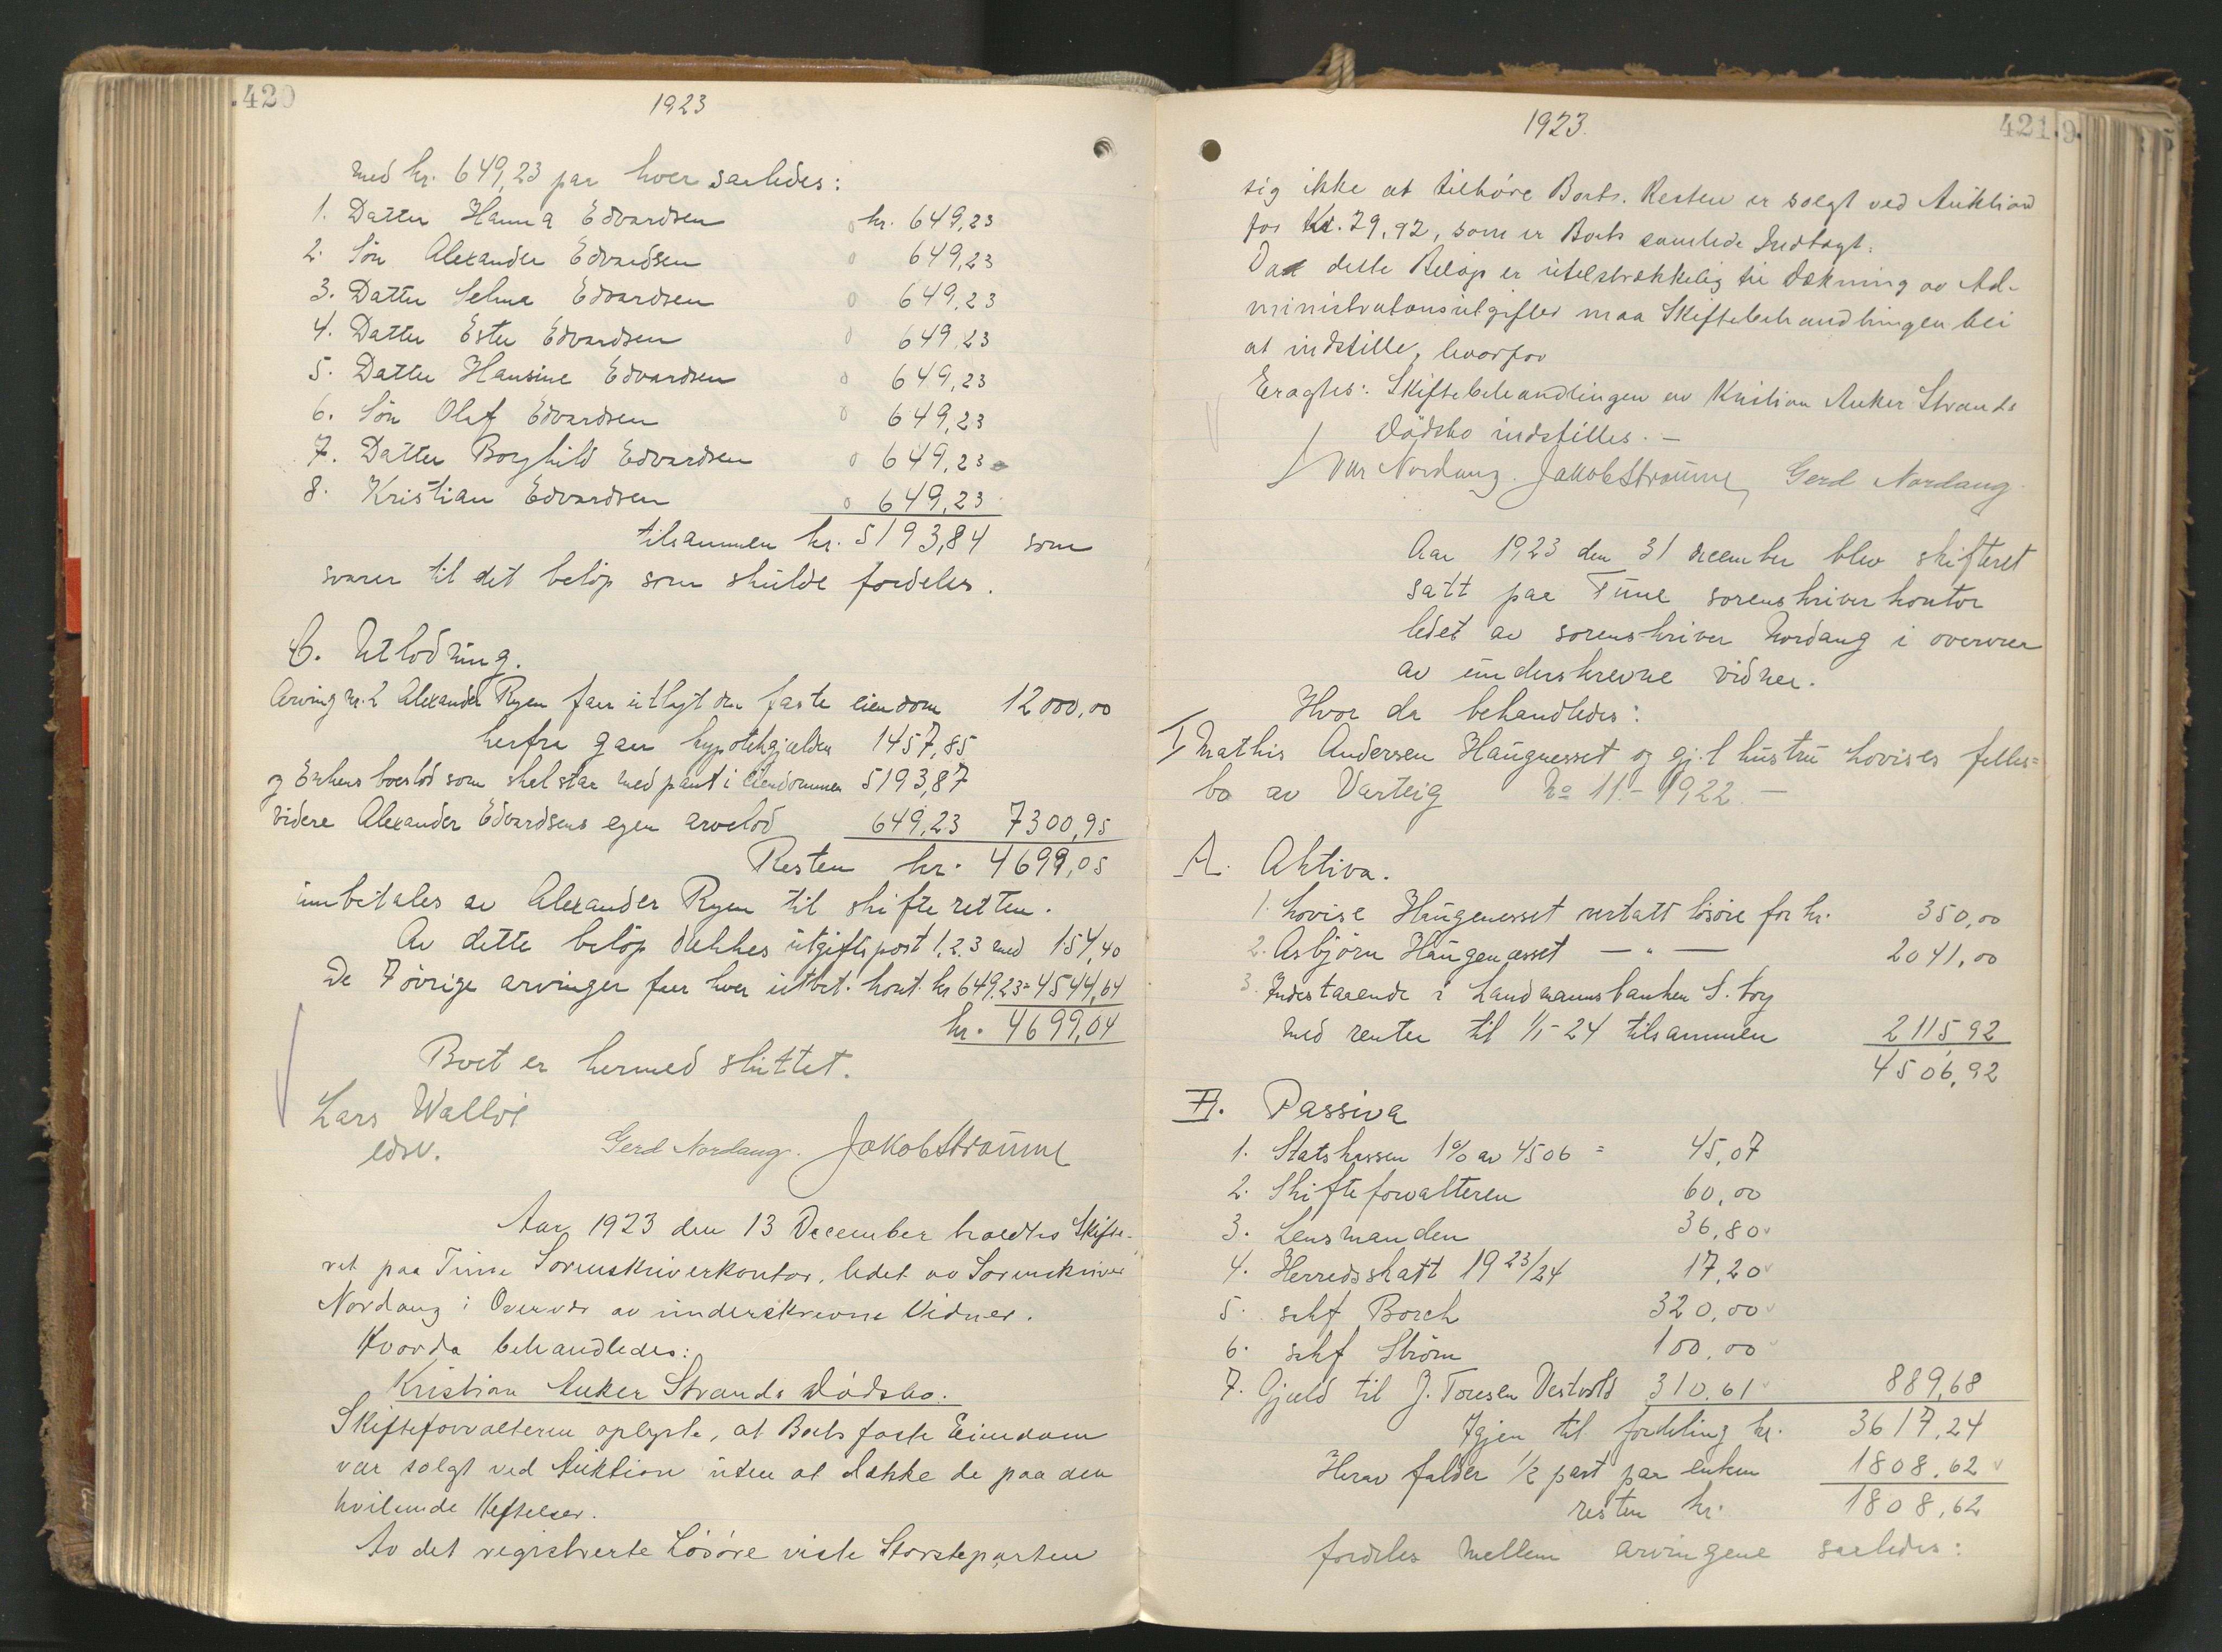 420
1923
med kr. 649,23 paa hver saaledes:
1. Datter Hanna Edvardsen kr. 649,23
2. Sön Alexander Edvardsen 649,23
3. Datter Selma Edvardsen 649,23
4. Datter Ester Edvardsen 649,23
5. Datter Hansine Edvardsen 649,23
6. Sön Olaf Edvardsen 649,23
7. Datter Borghild Edvardsen 649,23
8. Kristian Edvardsen 649,23
tilsammen kr. 5193,84 som
svarer til det belöp som skulde fordeles.
C. Utlodning.
Arving nr. 2 Alexander Ryen faar utlagt den faste eiendom 12000,00
herfra gaar hypotekgjælden 1457,85
og Enkens boeslod som skal staa med pant i eiendommen 5193,87
videre Alexander Edvardsens egen arvelod 649,23 7300,95
Resten kr. 4699,05
innbetales av Alexander Ryen til skifteretten.
Av dette belöp dækkes utgiftspost 1, 2, 3 med 154,40
De 7 övrige arvinger faar hver utbet. kont. kr 649,23 = 4544,64
kr. 4699,04
Boet er hermed sluttet.
Lars Walløe
edsv.
Gerd Nordang. Jakob Straume
Aar 1923 den 13 December holdtes Skifte-
ret paa Tune Sorenskriverkontor, ledet av Sorenskriver
Nordang i Overvær av underskrevne Vidner.
Hvorda behandledes:
Kristian Anker Strands Dödsbo.
Skifteforvalteren oplyste, at Boets faste Eiendom
var solgt ved Auktion uten at dække de paa den
hvilende Heftelser.
Av det registrerte Lösöre viste Storsteparten
1923.
421
9.
sig ikke at tilhöre Boet. Resten er solgt ved Auktion
for Kr. 79,92, som er Boets samlede Indtægt.
Da dette Belöp er utilstrækkelig til Dækning av Ad-
ministrationsutgifter maa Skiftebehandlingen bli
at indstille, hvorfor
Eragtes: Skiftebehandlingen av Kristian Anker Strands
Dödsbo indstilles. —
Nordang. Jakob Straume, Gerd Nordang.
Aar 1923 den 31 december blev skifteret
satt paa Tune sorenskriverkontor
ledet av sorenskriver Nordang i overvær
av underskrevne vidner.
Hvor da behandledes:
I, Mathis Andersen Haugnesset og gj.l. hustru Lovises felles=
bo av Varteig No 11 - 1922. —
A. Aktiva.
1. Lovise Haugenesset overtatt lösöre for kr. 350,00
2. Asbjörn Haugenæsset — " — 2041,00
3. Indestaaende i Landmannsbanken S.borg
med renter til 1/1-24 tilsammen 2115,92
4506,92
B. Passiva
1. Statskassen 1% av 4506 = 45,07
2. Skifteforvalteren 60,00
3. Lensmanden 36,80
4. Herredsskatt 1923/24 17,20
5. sakf Borch 320,00
6. sakf Ström 100,00
7. Gjæld til J. Toresen Vestvold 310,61 889,68
Igjen til fordeling kr. 3617,24
Herav falder 1/2 part paa enken 1808,62
resten kr. 1808,62
fordeles mellem arvingene saaledes: